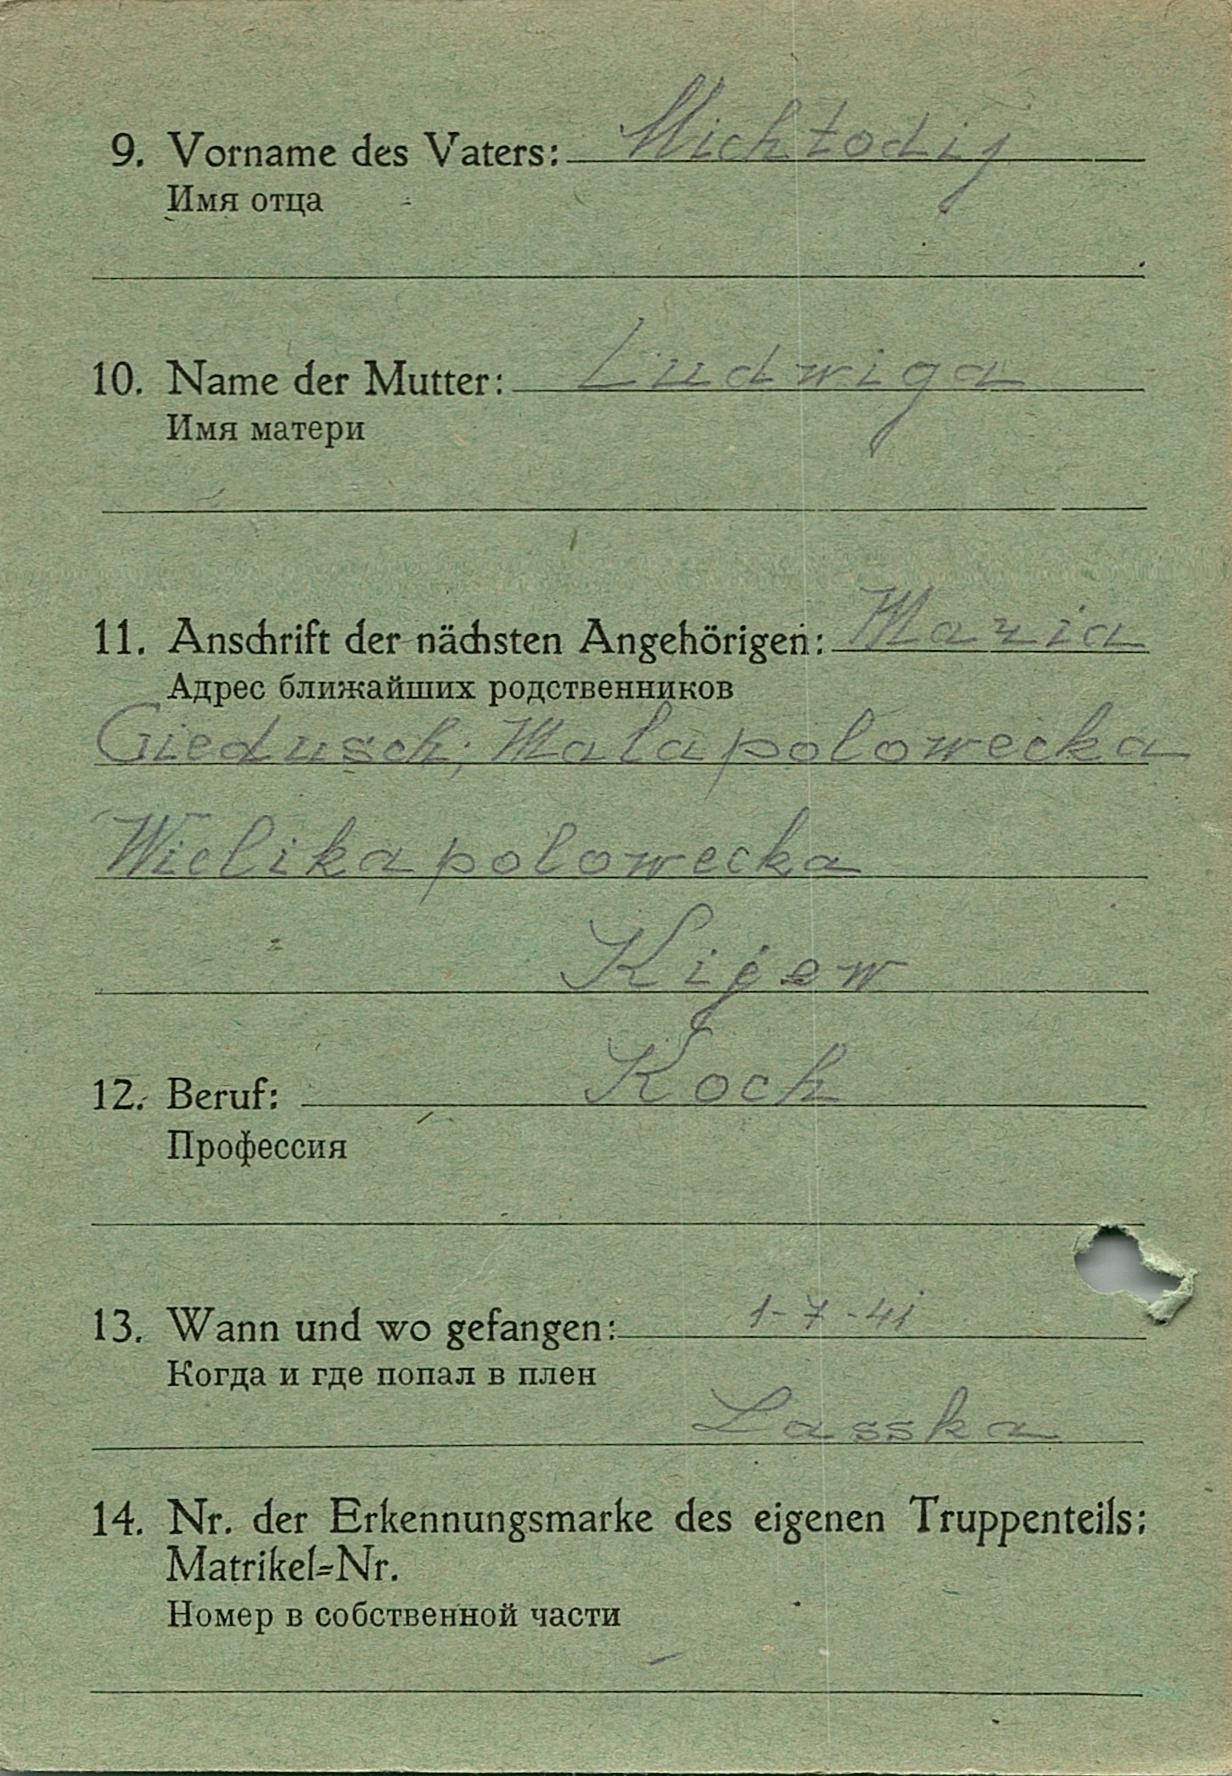 9. Vorname des Vaters: Michtodij
Имя отца
10. Name der Mutter: Ludwiga
Имя матери
11. Anschrift der nächsten Angehörigen: Maria
Адрес ближайших родственников
Giedusch; Mala polowecka
Wielika polowecka
Kijew
12. Beruf: Koch
Профессия
13. Wann und wo gefangen: 1-7-41
Когда и где попал в плен
Lasska
14. Nr. der Erkennungsmarke des eigenen Truppenteils:
Matrikel-Nr.
Номер в собственной части